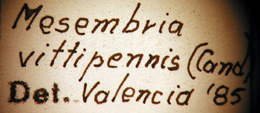 Mesembria
vittipennis (Cand)
Det. Valencia '85